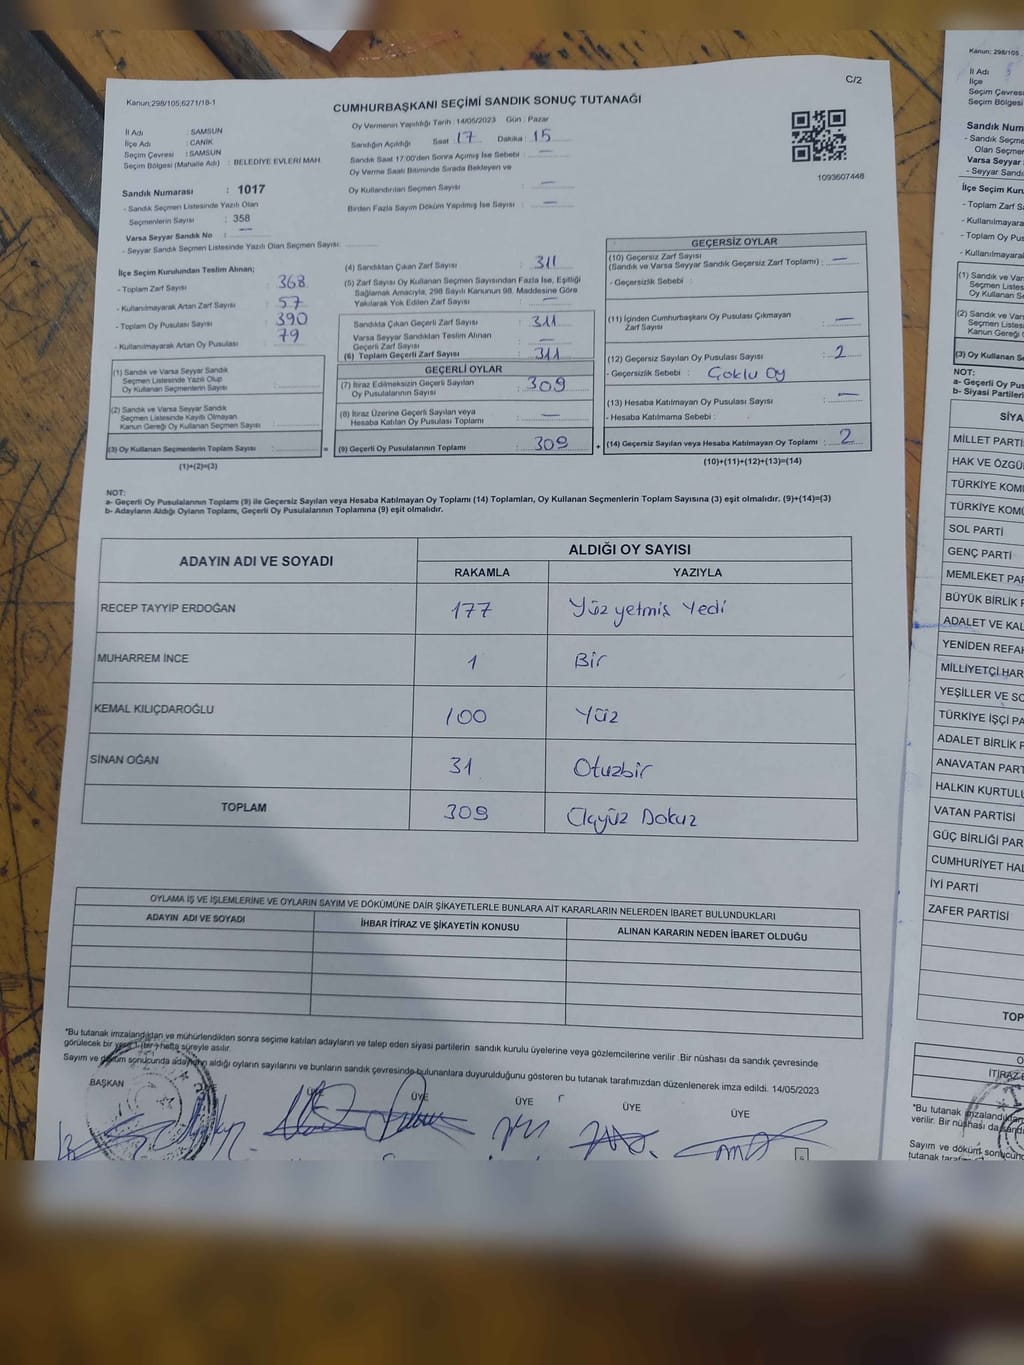 Kanun;298/105;6271/18-1
C/2
CUMHURBAŞKANI SEÇİMİ SANDIK SONUÇ TUTANAĞI
İl Adı : SAMSUN
İlçe Adı : CANİK
Seçim Çevresi : SAMSUN
Seçim Bölgesi (Mahalle Adı) : BELEDİYE EVLERİ MAH.
Sandık Numarası : 1017
- Sandık Seçmen Listesinde Yazılı Olan
Seçmenlerin Sayısı : 358
Varsa Seyyar Sandık No : —
- Seyyar Sandık Seçmen Listesinde Yazılı Olan Seçmen Sayısı:
Oy Vermenin Yapıldığı Tarih : 14/05/2023 Gün : Pazar
Sandığın Açıldığı Saat 17 Dakika : 15
Sandık Saat 17:00'den Sonra Açımış İse Sebebi : —
Oy Verme Saati Bitiminde Sırada Bekleyen ve
Oy Kullandırılan Seçmen Sayısı : —
Birden Fazla Sayım Döküm Yapılmış İse Sayısı : —
1093607448
İlçe Seçim Kurulundan Teslim Alınan;
- Toplam Zarf Sayısı : 368
- Kullanılmayarak Artan Zarf Sayısı : 57
- Toplam Oy Pusulası Sayısı : 390
- Kullanılmayarak Artan Oy Pusulası : 79
(1) Sandık ve Varsa Seyyar Sandık
Seçmen Listesinde Yazılı Olup
Oy Kullanan Seçmenlerin Sayısı :
(2) Sandık ve Varsa Seyyar Sandık
Seçmen Listesinde Kayıtlı Olmayan
Kanun Gereği Oy Kullanan Seçmen Sayısı :
(3) Oy Kullanan Seçmenlerin Toplam Sayısı : =
(1)+(2)=(3)
(4) Sandıktan Çıkan Zarf Sayısı : 311
(5) Zarf Sayısı Oy Kullanan Seçmen Sayısından Fazla İse, Eşitliği
Sağlamak Amacıyla, 298 Sayılı Kanunun 98. Maddesine Göre
Yakılarak Yok Edilen Zarf Sayısı : —
Sandıkta Çıkan Geçerli Zarf Sayısı : 311
Varsa Seyyar Sandıktan Teslim Alınan
Geçerli Zarf Sayısı : —
(6) Toplam Geçerli Zarf Sayısı : 311
GEÇERLİ OYLAR
(7) İtiraz Edilmeksizin Geçerli Sayılan
Oy Pusulalarının Sayısı : 309
(8) İtiraz Üzerine Geçerli Sayılan veya
Hesaba Katılan Oy Pusulası Toplamı : —
(9) Geçerli Oy Pusulalarının Toplamı : 309 +
GEÇERSİZ OYLAR
(10) Geçersiz Zarf Sayısı
(Sandık ve Varsa Seyyar Sandık Geçersiz Zarf Toplamı) : —
- Geçersizlik Sebebi :
(11) İçinden Cumhurbaşkanı Oy Pusulası Çıkmayan
Zarf Sayısı : —
(12) Geçersiz Sayılan Oy Pusulası Sayısı : 2
- Geçersizlik Sebebi : Çoklu Oy
(13) Hesaba Katılmayan Oy Pusulası Sayısı : —
- Hesaba Katılmama Sebebi :
(14) Geçersiz Sayılan veya Hesaba Katılmayan Oy Toplamı : 2
(10)+(11)+(12)+(13)=(14)
NOT:
a- Geçerli Oy Pusulalarının Toplamı (9) ile Geçersiz Sayılan veya Hesaba Katılmayan Oy Toplamı (14) Toplamları, Oy Kullanan Seçmenlerin Toplam Sayısına (3) eşit olmalıdır. (9)+(14)=(3)
b- Adayların Aldığı Oyların Toplamı, Geçerli Oy Pusulalarının Toplamına (9) eşit olmalıdır.
ADAYIN ADI VE SOYADI
ALDIĞI OY SAYISI
RAKAMLA YAZIYLA
RECEP TAYYİP ERDOĞAN 177 Yüz yetmiş Yedi
MUHARREM İNCE 1 Bir
KEMAL KILIÇDAROĞLU 100 Yüz
SİNAN OĞAN 31 Otuzbir
TOPLAM 309 Üçyüz Dokuz
OYLAMA İŞ VE İŞLEMLERİNE VE OYLARIN SAYIM VE DÖKÜMÜNE DAİR ŞİKAYETLERLE BUNLARA AİT KARARLARIN NELERDEN İBARET BULUNDUKLARI
ADAYIN ADI VE SOYADI İHBAR İTİRAZ VE ŞİKAYETİN KONUSU ALINAN KARARIN NEDEN İBARET OLDUĞU
*Bu tutanak imzalandıktan ve mühürlendikten sonra seçime katılan adayların ve talep eden siyasi partilerin sandık kurulu üyelerine veya gözlemcilerine verilir .Bir nüshası da sandık çevresinde
görülecek bir yere 1 (bir) hafta süreyle asılır.
Sayım ve döküm sonucunda adayların aldığı oyların sayılarını ve bunların sandık çevresinde bulunanlara duyurulduğunu gösteren bu tutanak tarafımızdan düzenlenerek imza edildi. 14/05/2023
BAŞKAN ÜYE ÜYE ÜYE ÜYE ÜYE
Kanun; 298/105
İl Adı
İlçe
Seçim Çevres
Seçim Bölgesi
Sandık Num
- Sandık Seçme
Olan Seçme
Varsa Seyyar
- Seyyar Sandı
İlçe Seçim Kuru
- Toplam Zarf S
- Kullanılmaya
- Toplam Oy P
- Kullanılmaya
(1) Sandık ve Var
Seçmen Listes
Oy Kullanan Se
(2) Sandık ve Vars
Seçmen Listes
Kanun Gereği O
(3) Oy Kullanan Se
NOT:
a- Geçerli Oy Pus
b- Siyasi Partileri
SİYA
MİLLET PARTİ
HAK VE ÖZGÜ
TÜRKİYE KOM
TÜRKİYE KOMÜ
SOL PARTİ
GENÇ PARTİ
MEMLEKET PAR
BÜYÜK BİRLİK P
ADALET VE KAL
YENİDEN REFAH
MİLLİYETÇİ HAR
YEŞİLLER VE SO
TÜRKİYE İŞÇİ PA
ADALET BİRLİK P
ANAVATAN PART
HALKIN KURTULU
VATAN PARTİSİ
GÜÇ BİRLİĞİ PAR
CUMHURİYET HAL
İYİ PARTİ
ZAFER PARTİSİ
TOP
O
İTİRAZ
*Bu tutanak imzalandık
verilir. Bir nüshası da sand
Sayım ve döküm sonucun